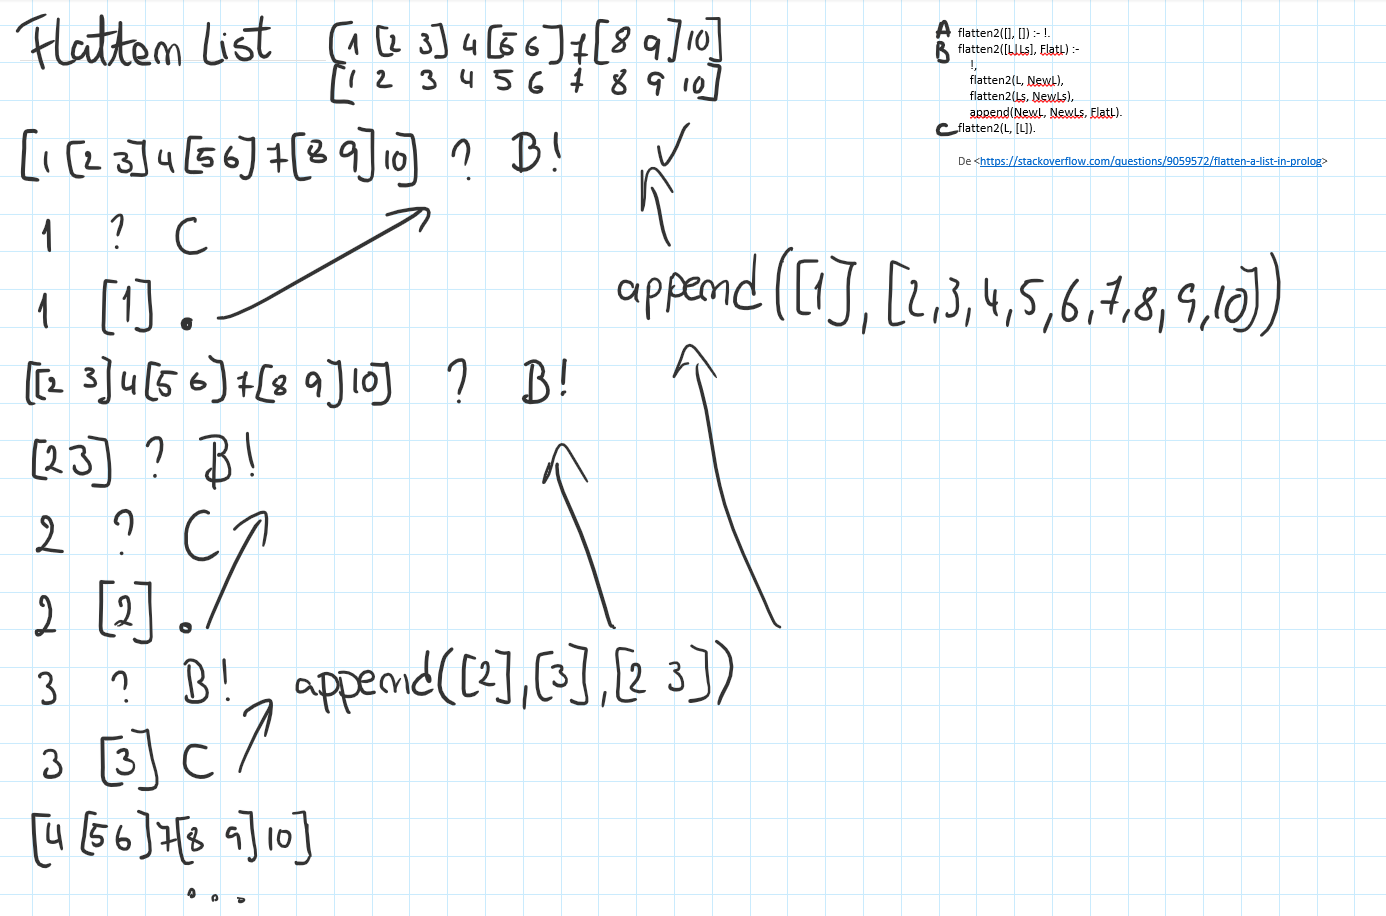 Flatten List [1 [2 3] 4 [5 6] 7 [8 9] 10]
[1 2 3 4 5 6 7 8 9 10]
A flatten2([], []) :- !.
B flatten2([L|Ls], FlatL) :-
!,
flatten2(L, NewL),
flatten2(Ls, NewLs),
append(NewL, NewLs, FlatL).
C flatten2(L, [L]).
De <https://stackoverflow.com/questions/9059572/flatten-a-list-in-prolog>
[1 [2 3] 4 [5 6] 7 [8 9] 10] ? B! ✓
1 ? C
1 [1] .
append([1], [2,3,4,5,6,7,8,9,10])
[[2 3] 4 [5 6] 7 [8 9] 10] ? B!
[2 3] ? B!
2 ? C
2 [2] .
3 ? B! append([2],[3],[2 3])
3 [3] C
[4 [5 6] 7 [8 9] 10]
...